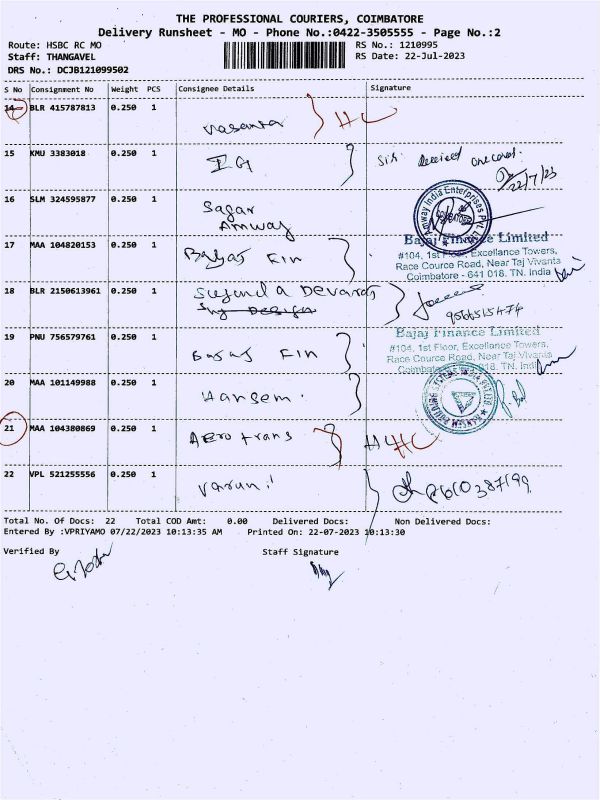 THE PROFESSIONAL COURIERS, COIMBATORE
Delivery Runsheet - MO - Phone No.:0422-3505555 - Page No.:2
Route: HSBC RC MO
RS No.: 1210995
Staff: THANGAVEL
RS Date: 22-Jul-2023
DRS No.: DCJB121099502
S No Consignment No Weight PCS Consignee Details Signature
14 BLR 415787813 0.250 1
Vasanta HC
15 KMU 3383018 0.250 1 IG
Received one cover.
22/7/23
16 SLM 324595877 0.250 1 Sagar
Amway
Amway India Enterprises Pvt. Ltd.
17 MAA 104820153 0.250 1 Bajaj Fin
Bajaj Finance Limited
#104, 1st Floor, Excellance Towers,
Race Cource Road, Near Taj Vivanta
Coimbatore - 641 018. TN. India
18 BLR 2150613961 0.250 1 Devaraj
Design
9566515474
19 PNU 756579761 0.250 1 Bajaj Fin
Bajaj Finance Limited
#104, 1st Floor, Excellance Towers,
Race Cource Road, Near Taj Vivanta
Coimbatore - 641 018. TN. India
20 MAA 101149988 0.250 1 Hansem.
21 MAA 104380869 0.250 1 Aero trans HC
22 VPL 521255556 0.250 1 Varun
Total No. Of Docs: 22 Total COD Amt: 0.00 Delivered Docs: Non Delivered Docs:
Entered By :VPRIYAMO 07/22/2023 10:13:35 AM Printed On: 22-07-2023 10:13:30
Verified By Staff Signature